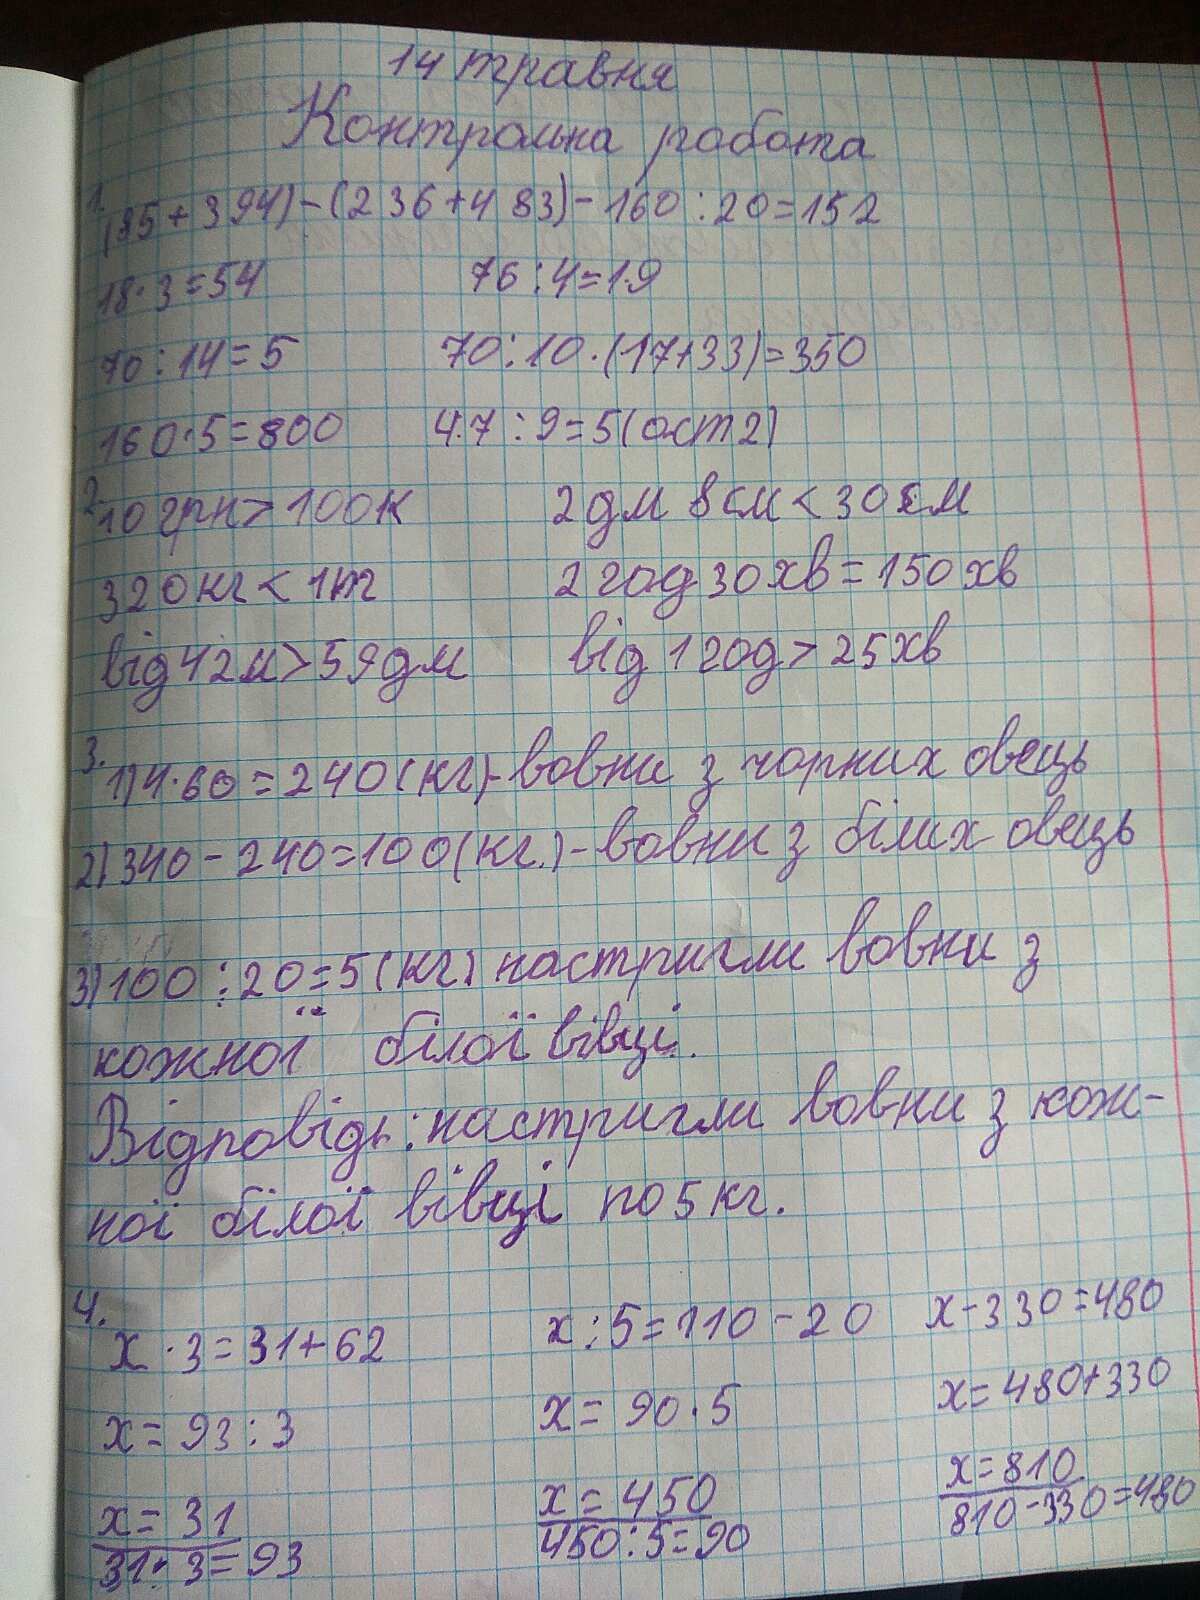 14 травня
Контрольна робота
1. (85+394)-(236+483)-160:20=152
18·3=54 76:4=19
70:14=5 70:10·(17+33)=350
160·5=800 47:9=5(ост2)
2. 10грн>100к 2дм 8см<30см
320кг<1т 2год30хв=150хв
від42м>59дм від 1год>25хв
3. 1)4·60=240(кг)-вовни з чорних овець
2)340-240=100(кг.)-вовни з білих овець
3)100:20=5(кг) настригли вовни з
кожної білої вівці.
Відповідь: настригли вовни з кож-
ної білої вівці по 5кг.
4. х·3=31+62 х:5=110-20 х-330=480
х=93:3 х=90·5 х=480+330
х=31 х=450 х=810
31·3=93 450:5=90 810-330=480